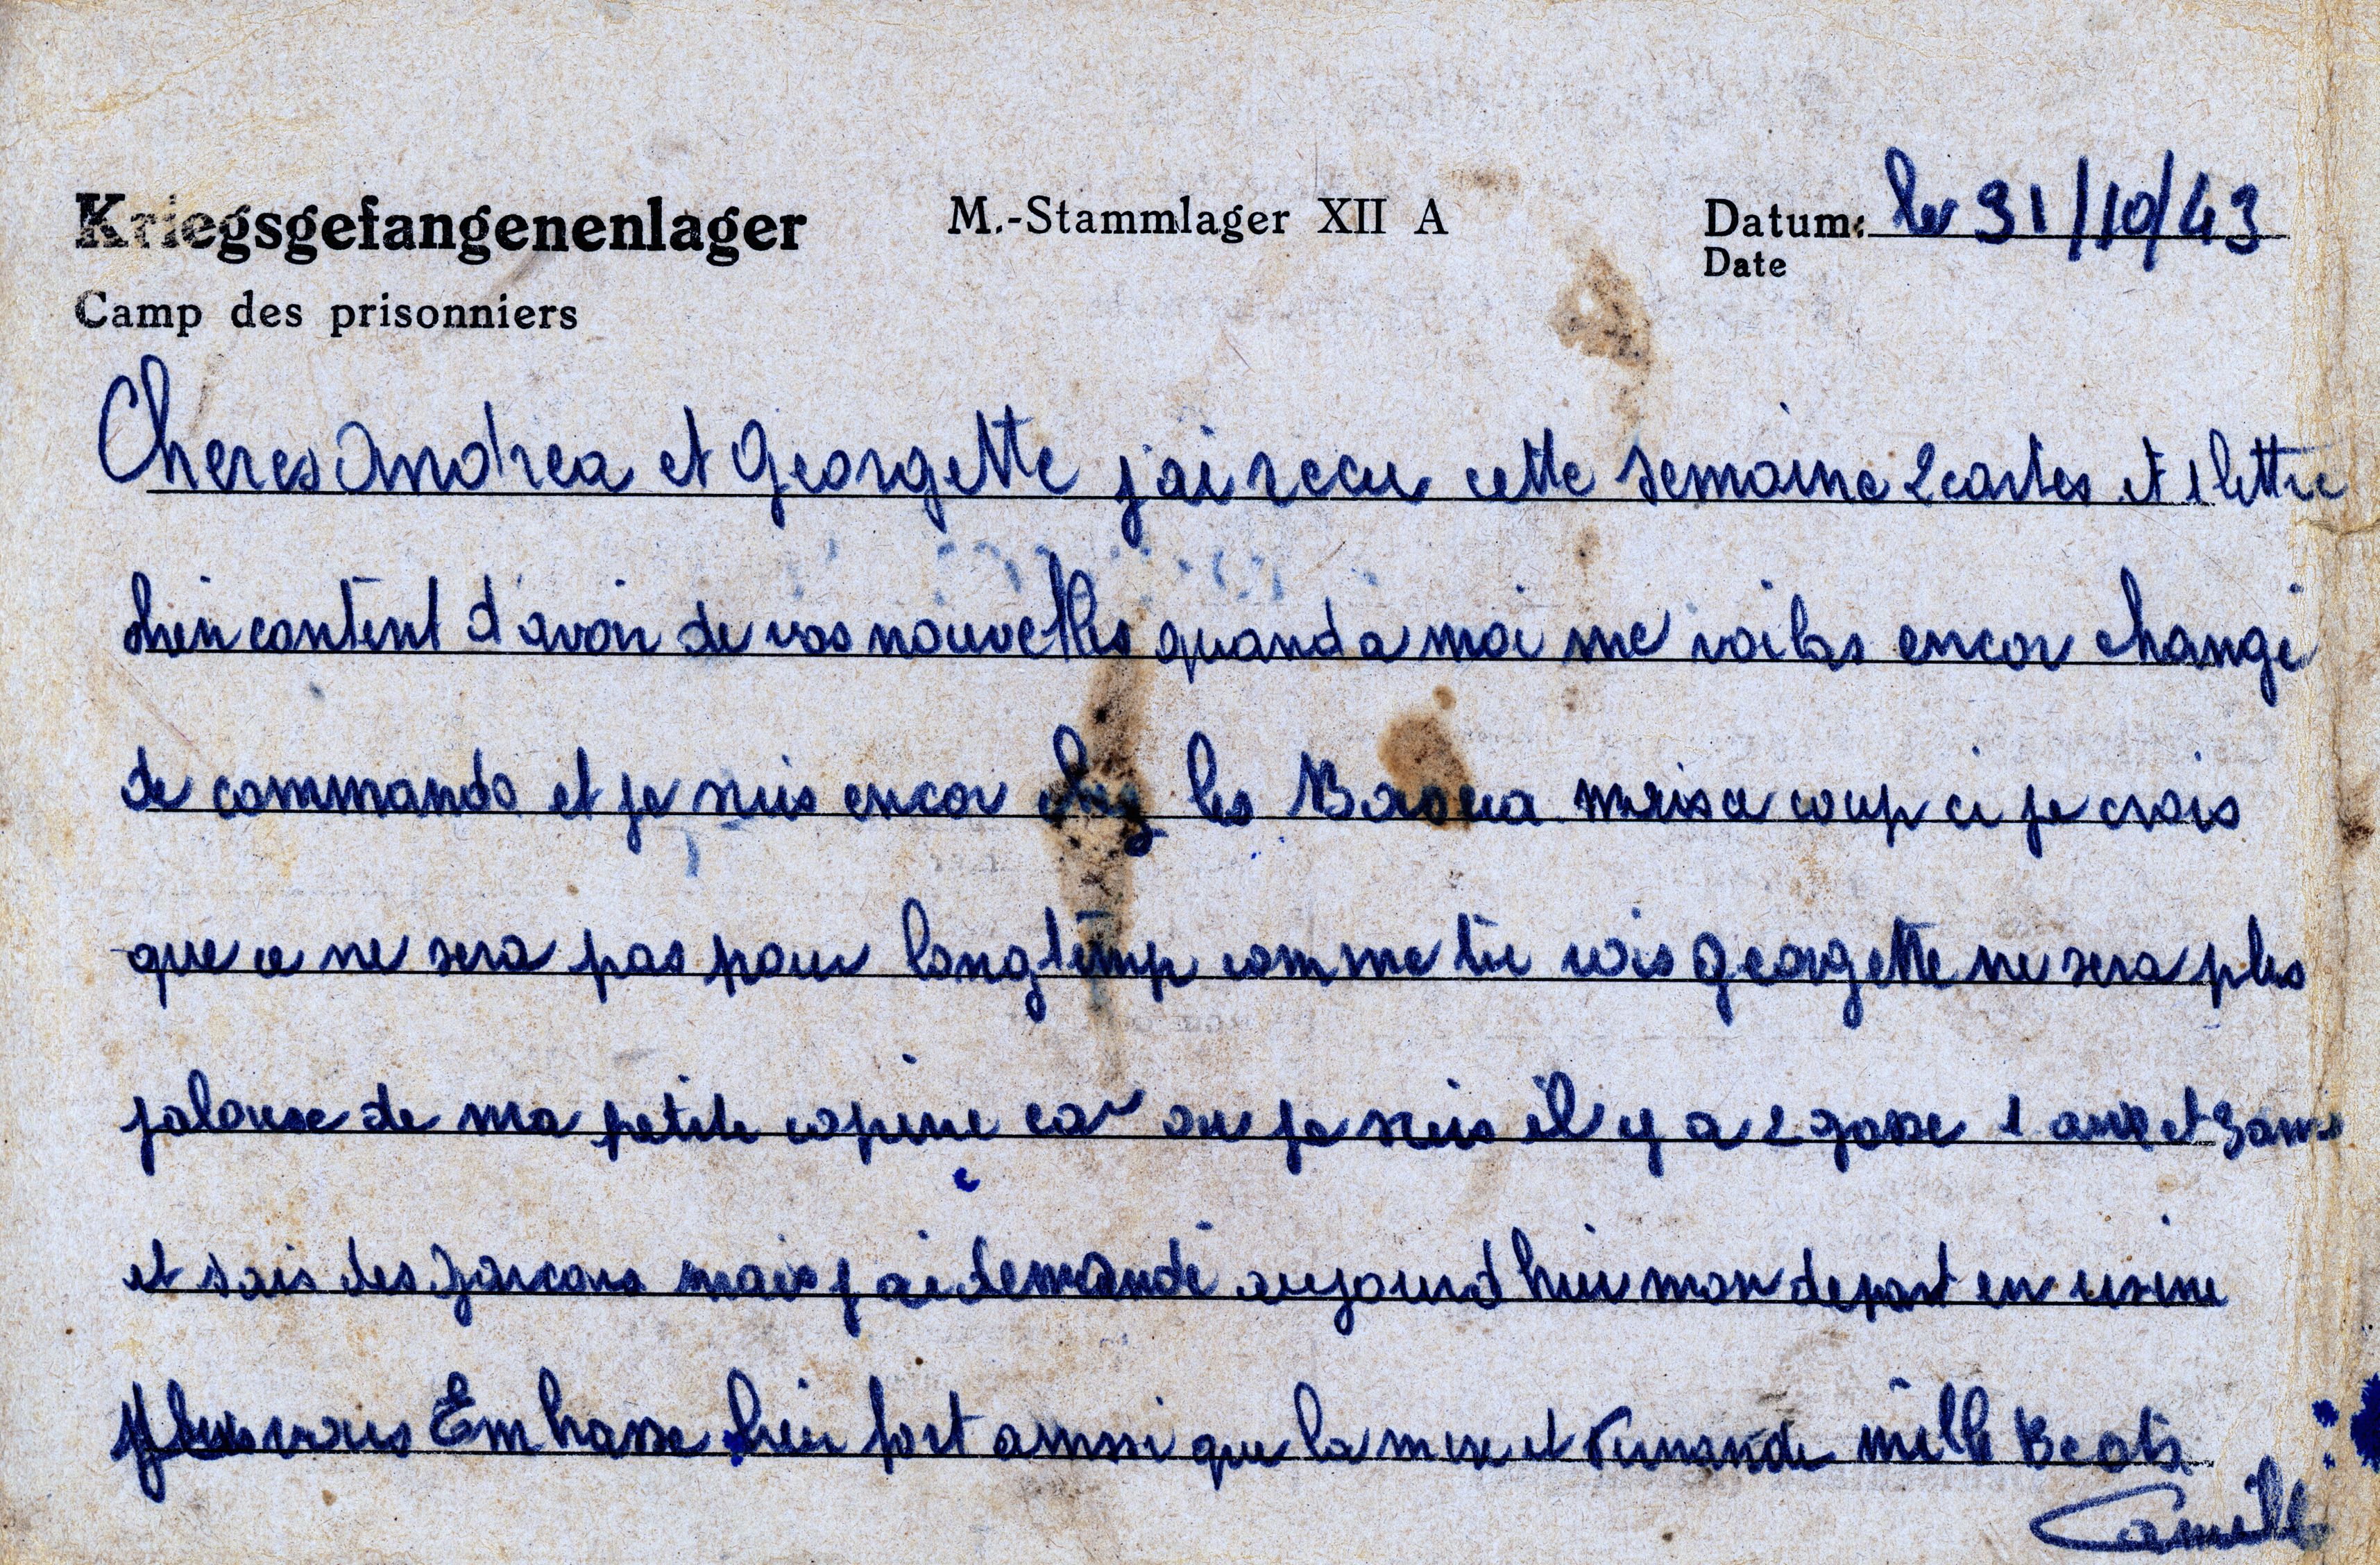 Kriegsgefangenenlager M.-Stammlager XII A Datum: le 31/10/43
Camp des prisonniers Date
Cheres Andrea et Georgette j'ai recu cette semaine 2 cartes et 1 lettre
bien content d'avoir de vos nouvelles quand a moi me voilas encor change
de commando et je suis encor chez les Baoura mais ce coup ci je crois
que ce ne sera pas pour longtemp comme tu vois Georgette ne sera plus
jalouse de ma petite copine car ou je suis il y a 2 gosse 1 ans et 3 ans
et sais des garcons mais j ai demandé aujourd hui mon depart en usine
vous Embrasse bien fort ainssi que la mere et Fernande mille Becots
Camille